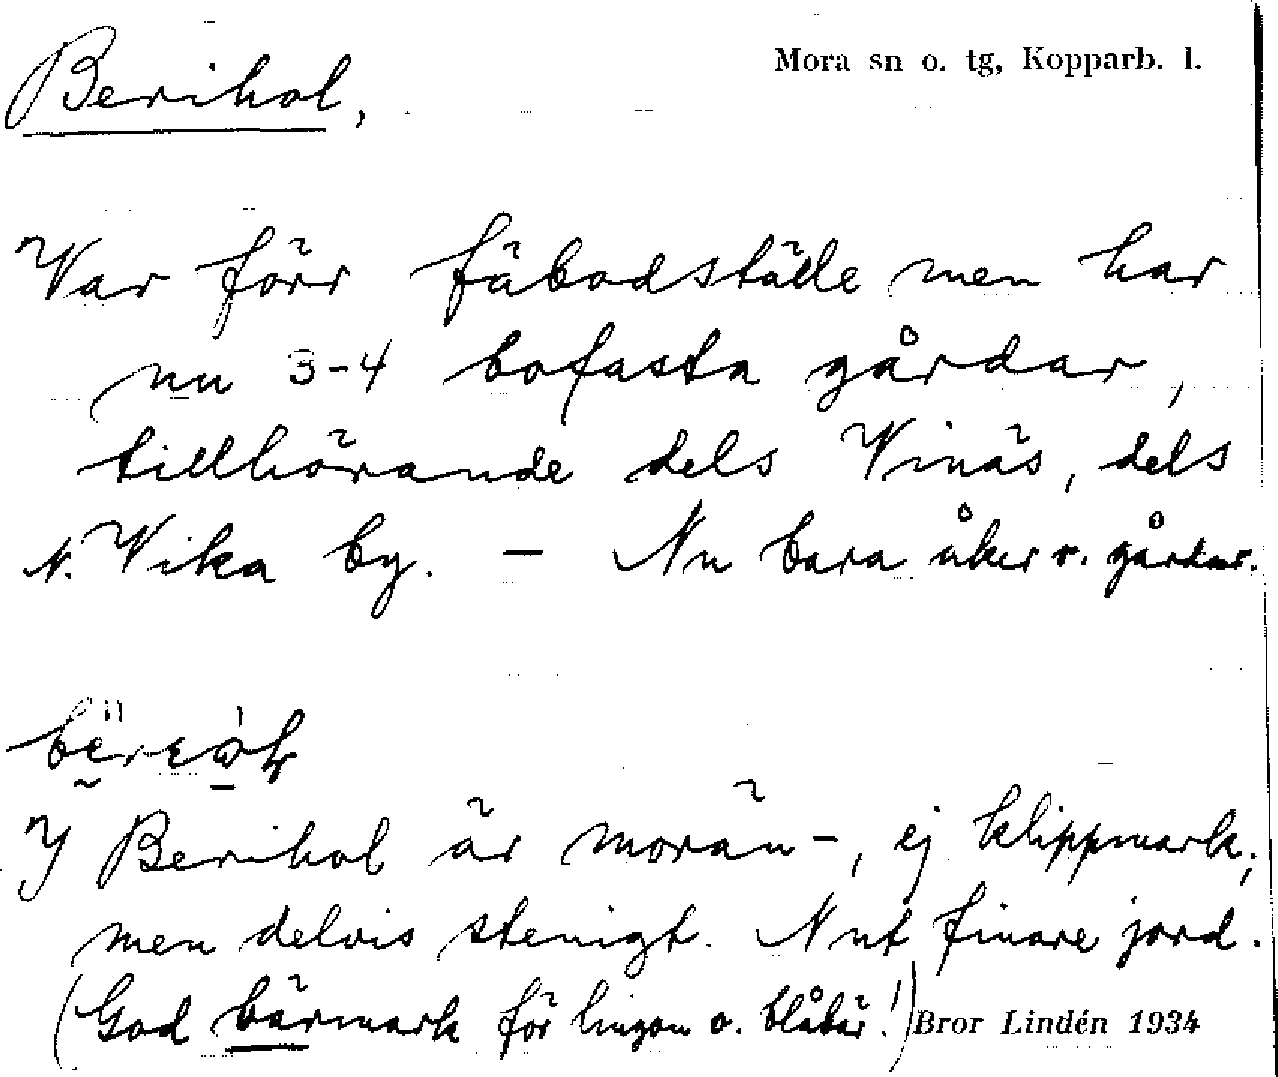 Berihol,
Mora sn o. tg, Kopparb. l.
Var förr fäbodställe men har
nu 3-4 bofasta gårdar,
tillhörande dels Vinäs, dels
N. Vika by. – Nu bara åker o. gårdar.
I Berihol är morän-, ej klippmark,
men delvis stenigt. Nut finare jord.
(God bärmark för lingon o. blåbär!)
Bror Lindén 1934